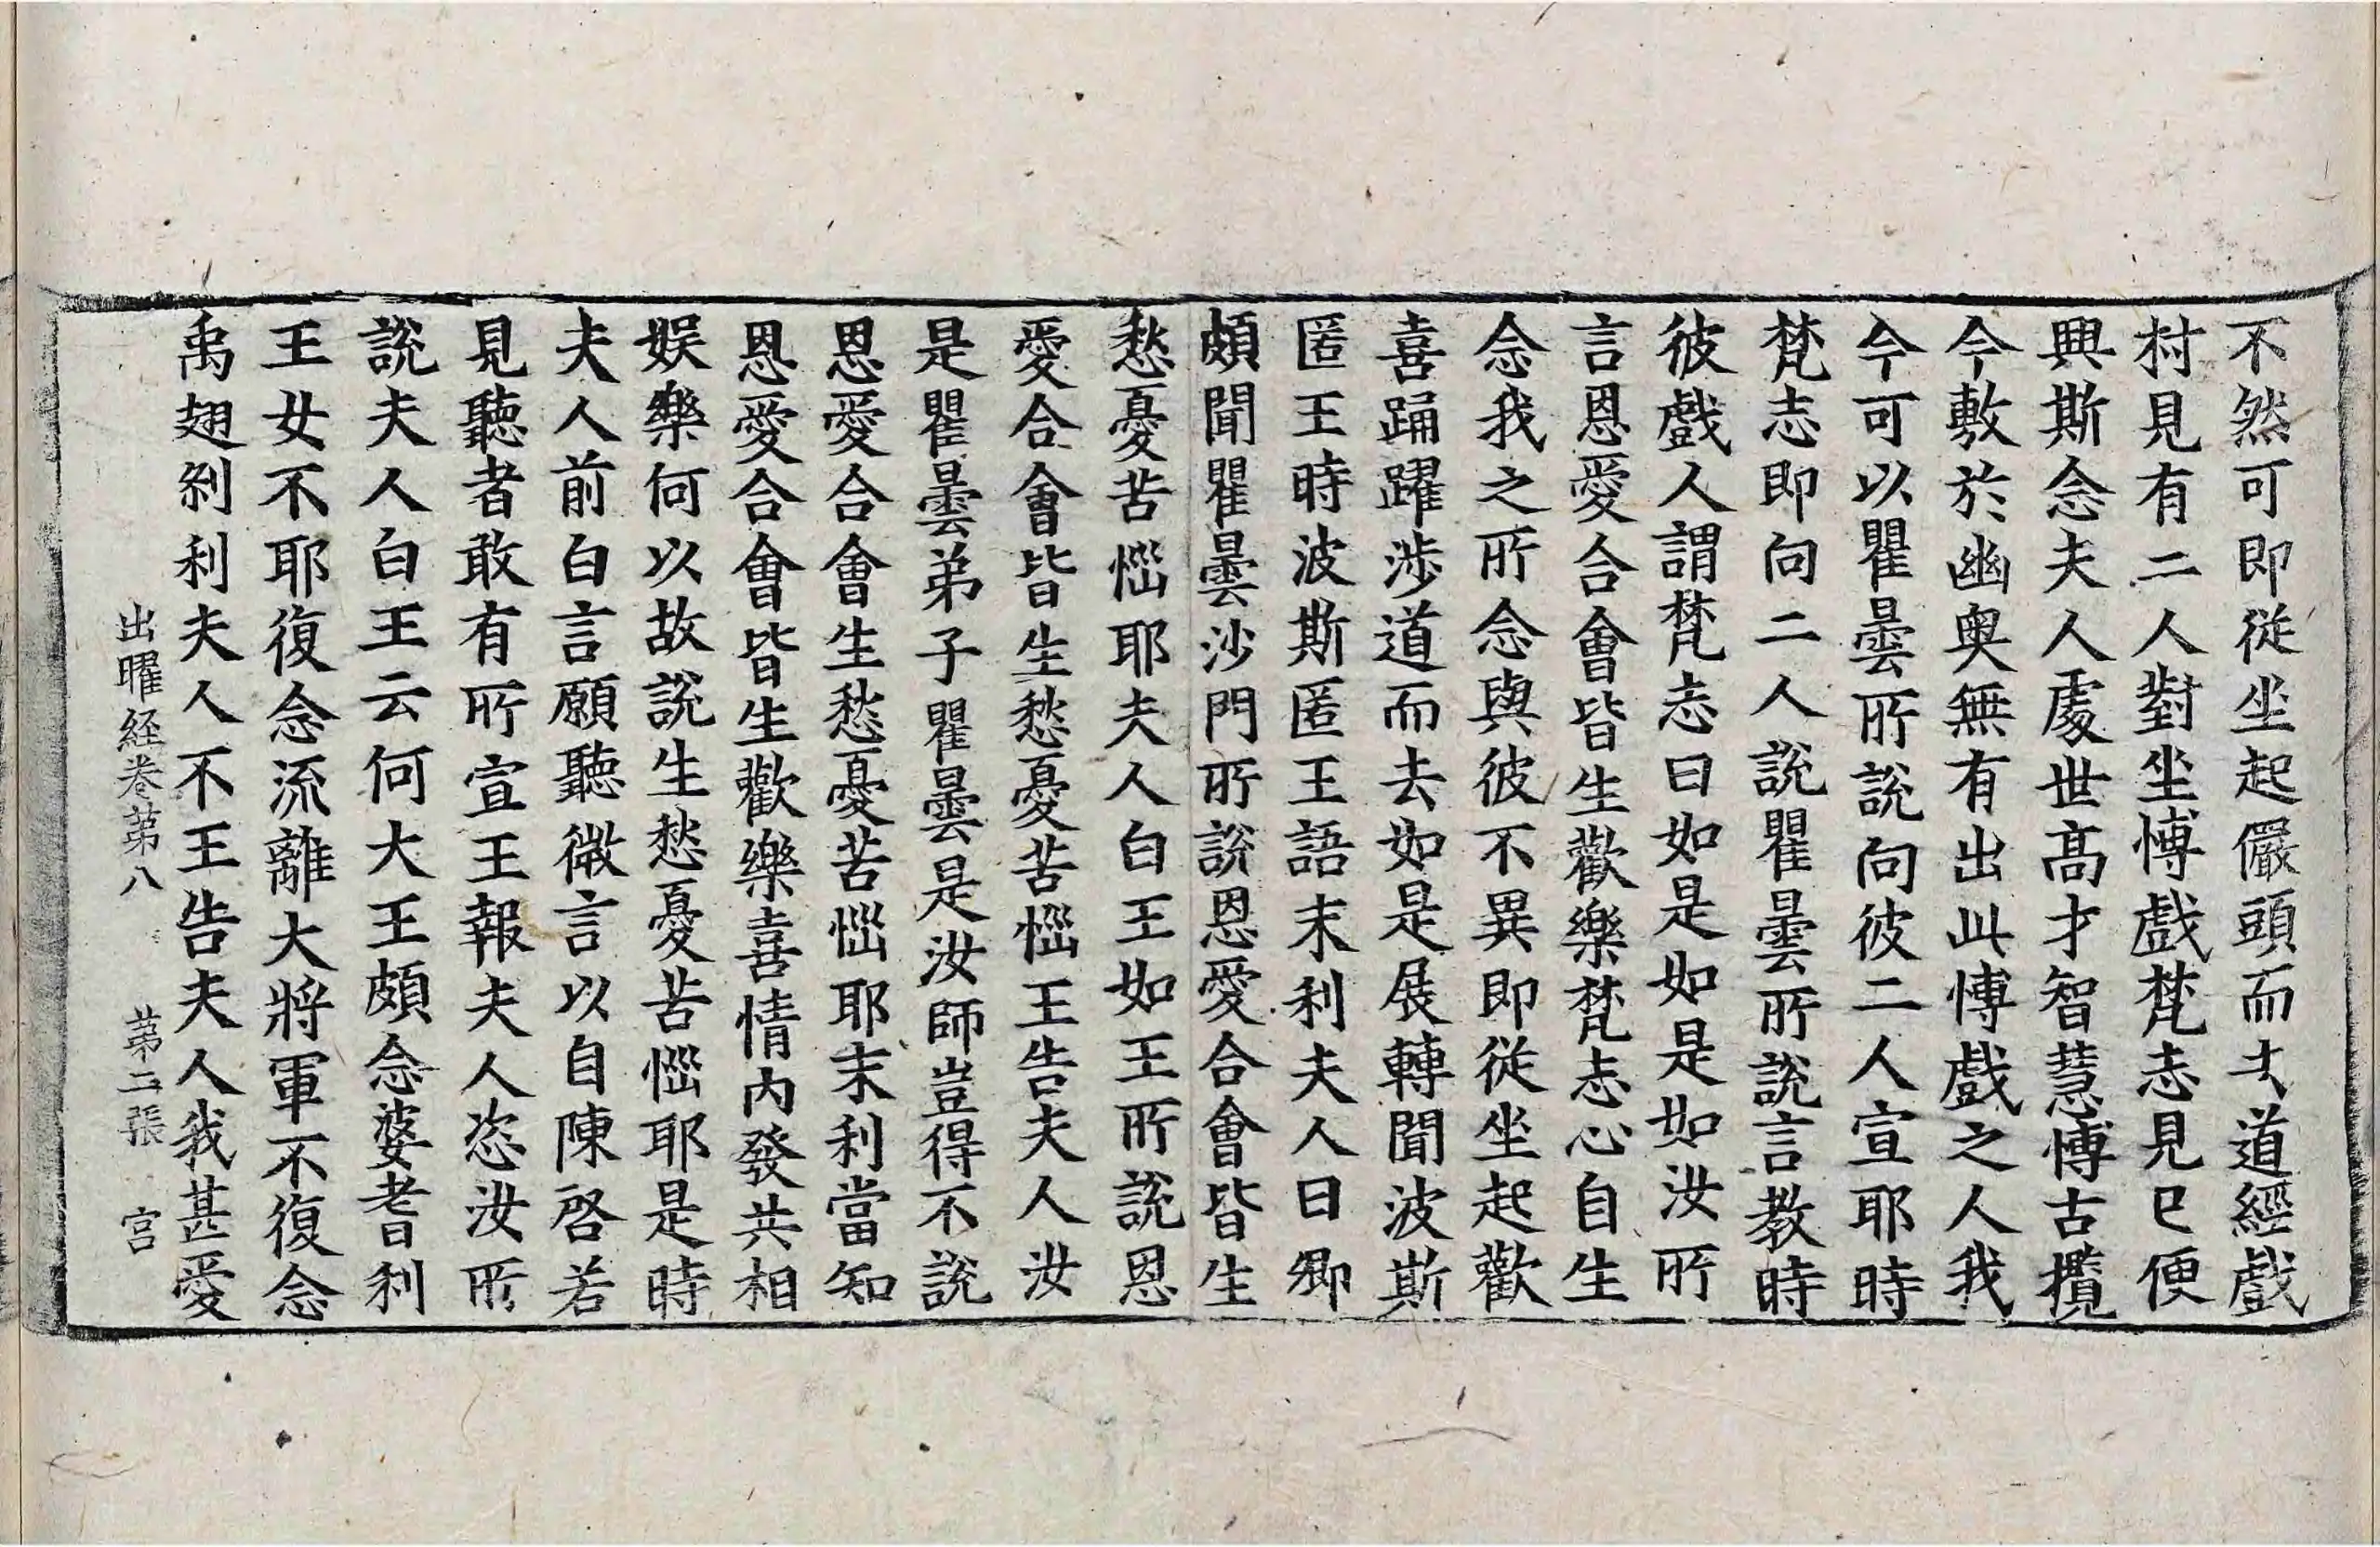 不然可即從坐起儼頭而去道經戲
村見有二人對坐博戲梵志見已便
興斯念夫人處世高才智慧博古攬
今敷於幽奧無有出此博戲之人我
今可以瞿曇所說向彼二人宣耶時
梵志即向二人說瞿曇所說言教時
彼戲人謂梵志曰如是如是如汝所
言恩愛合會皆生歡樂梵志心自生
念我之所念與彼不異即從坐起歡
喜踊躍涉道而去如是展轉聞波斯
匿王時波斯匿王語末利夫人曰卿
頗聞瞿曇沙門所說恩愛合會皆生
愁憂苦惱耶夫人白王如王所說恩
愛合會皆生愁憂苦惱王告夫人汝
是瞿曇弟子瞿曇是汝師豈得不說
恩愛合會生愁憂苦惱耶末利當知
恩愛合會皆生歡樂喜情內發共相
娛樂何以故說生愁憂苦惱耶是時
夫人前白言願聽微言以自陳啓若
見聽者敢有所宣王報夫人恣汝所
說夫人白王云何大王頗念婆耆利
王女不耶復念流離大將軍不復念
禹翅剎利夫人不王告夫人我甚愛
出曜經卷第八 第二張 宮